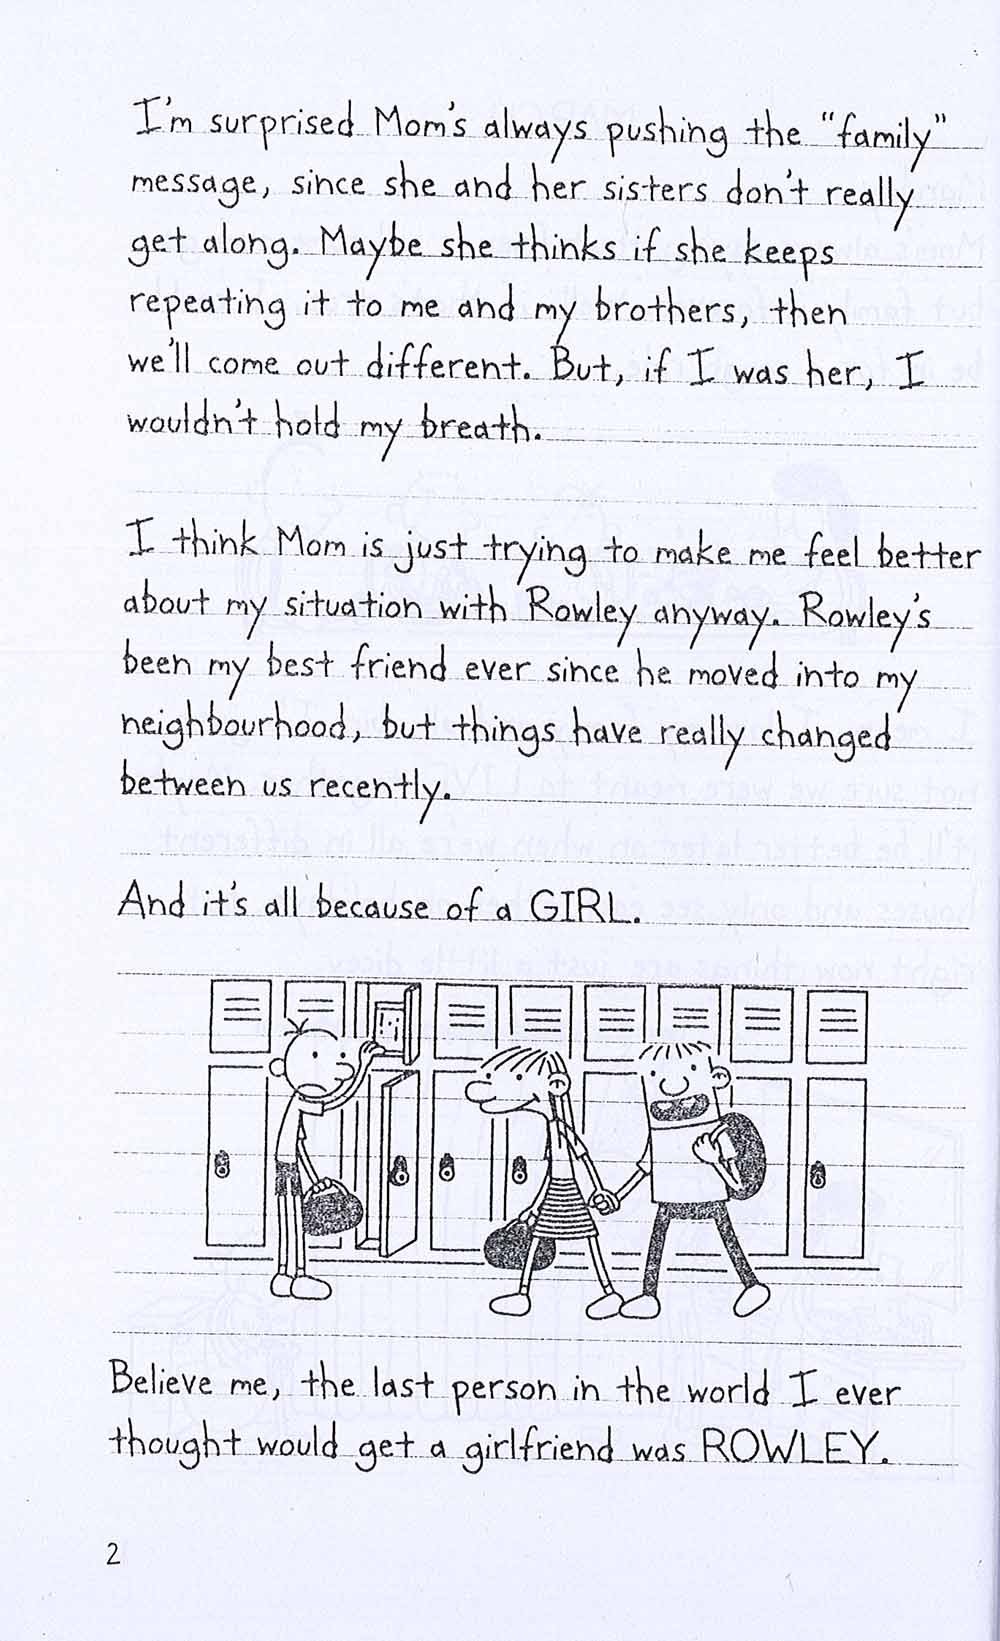 I'm surprised Mom's always pushing the "family"
message, since she and her sisters don't really
get along. Maybe she thinks if she keeps
repeating it to me and my brothers, then
we'll come out different. But, if I was her, I
wouldn't hold my breath.
I think Mom is just trying to make me feel better
about my situation with Rowley anyway. Rowley's
been my best friend ever since he moved into my
neighbourhood, but things have really changed
between us recently.
And it's all because of a GIRL.
Believe me, the last person in the world I ever
thought would get a girlfriend was ROWLEY.
2